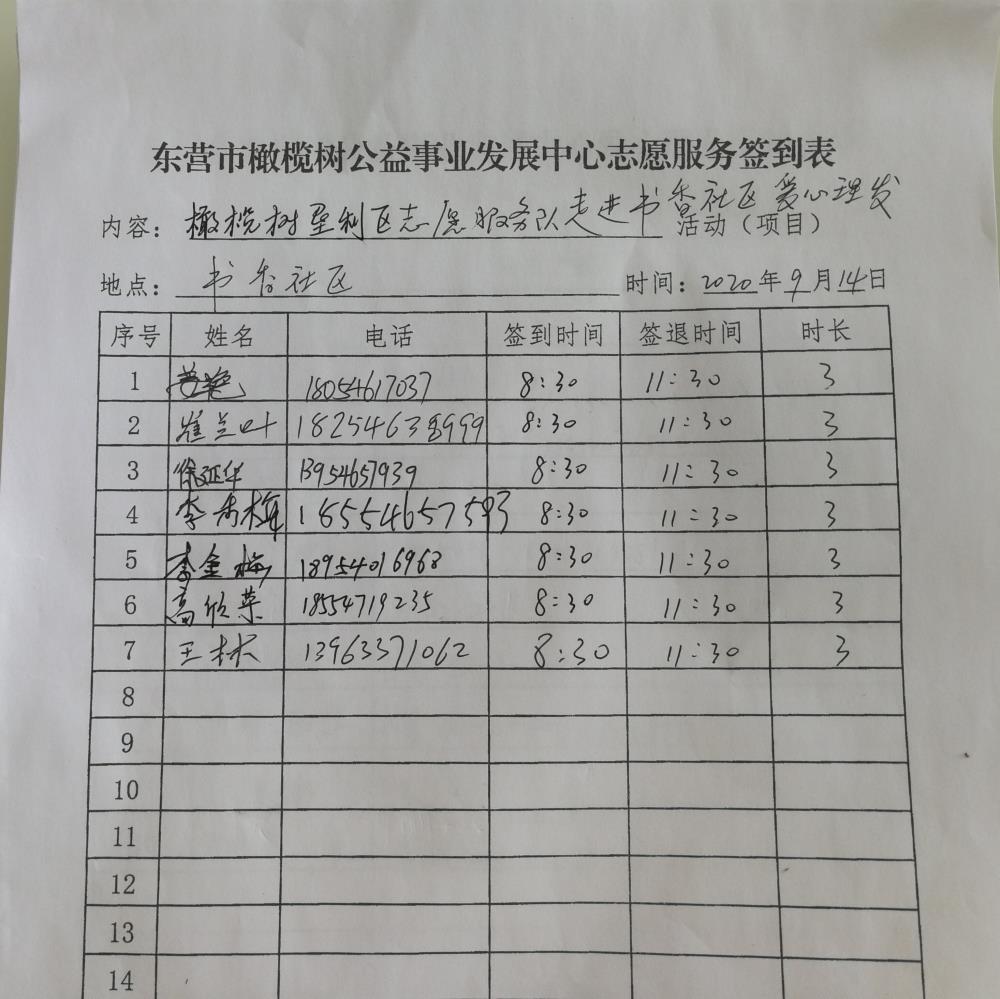 东营市橄榄树公益事业发展中心志愿服务签到表
内容：橄榄树垦利区志愿服务队走进书香社区爱心理发活动（项目）
地点：书香社区 时间：2020年9月14日
序号 姓名 电话 签到时间 签退时间 时长
1 18054617037 8:30 11:30 3
2 崔兰叶 18254638999 8:30 11:30 3
3 徐延华 13954657939 8:30 11:30 3
4 李秀梅 18554657593 8:30 11:30 3
5 李金梅 18954016968 8:30 11:30 3
6 高欣荣 18554719235 8:30 11:30 3
7 王林 13963371062 8:30 11:30 3
8
9
10
11
12
13
14